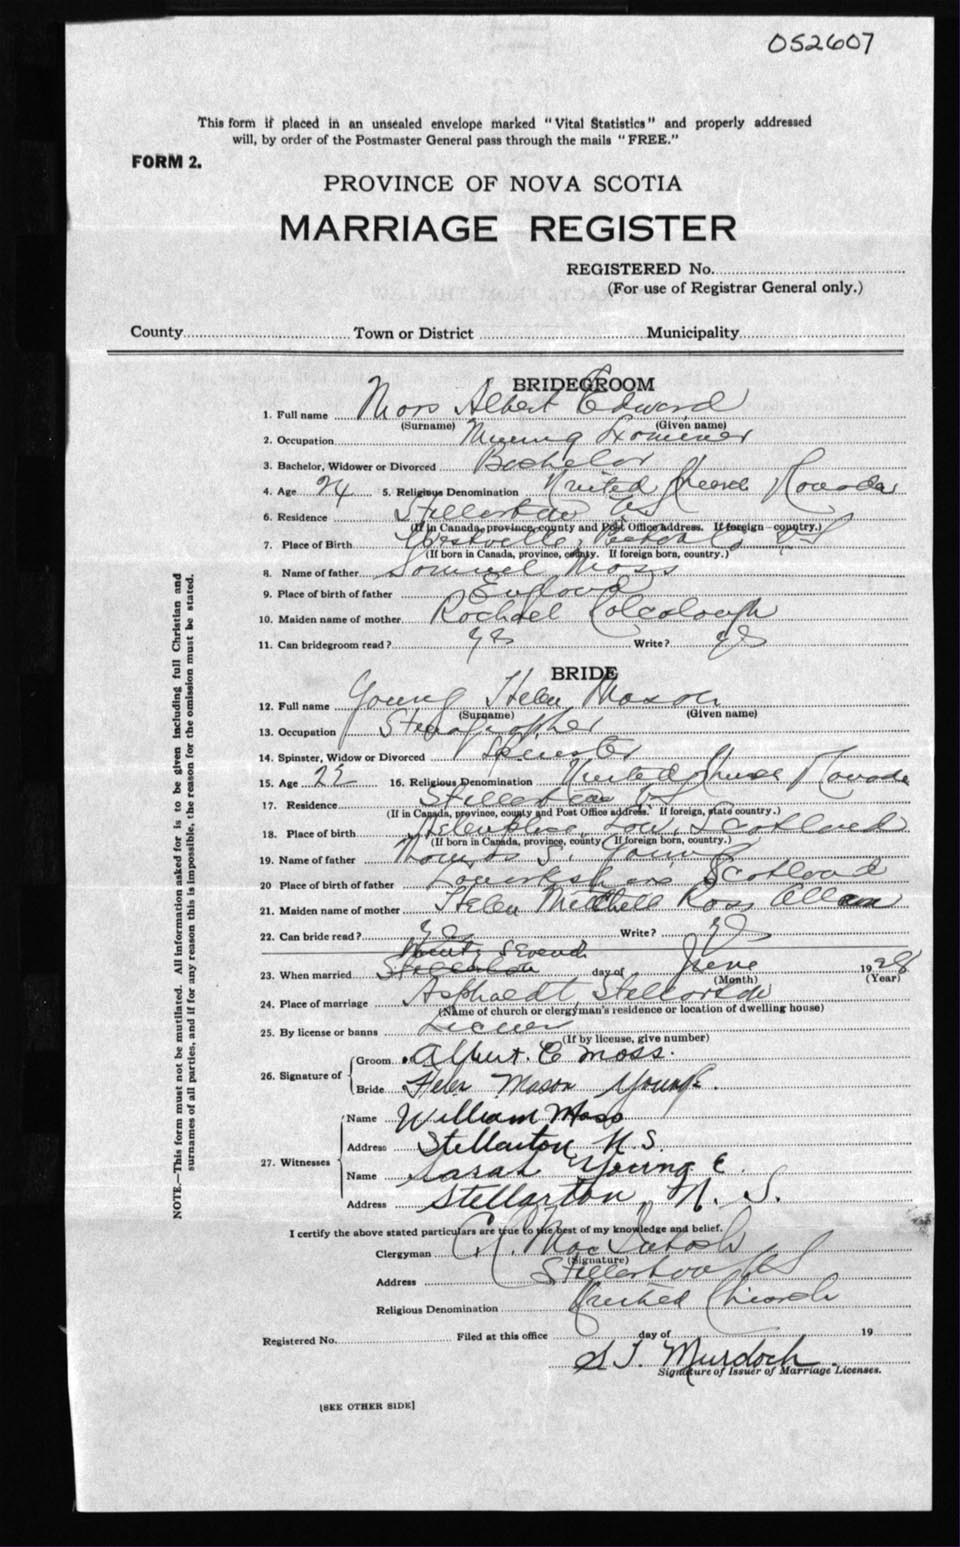 052607
This form if placed in an unsealed envelope marked "Vital Statistics" and properly addressed
will, by order of the Postmaster General pass through the mails "FREE."
FORM 2.
PROVINCE OF NOVA SCOTIA
MARRIAGE REGISTER
REGISTERED No.
(For use of Registrar General only.)
County Town or District Municipality
BRIDEGROOM
1. Full name Moss Albert Edward
(Surname) (Given name)
2. Occupation Mining Examiner
3. Bachelor, Widower or Divorced Bachelor
4. Age 24 5. Religious Denomination United Church Canada
6. Residence Stellarton NS
(If in Canada, province, county and Post Office address. If foreign country.)
7. Place of Birth Westville, Pictou Co NS
(If born in Canada, province, county. If foreign born, country.)
8. Name of father Samuel Moss
9. Place of birth of father England
10. Maiden name of mother Rachael Colcolough
11. Can bridegroom read? yes Write? yes
BRIDE
12. Full name Young Helen Mason
(Surname) (Given name)
13. Occupation Stenographer
14. Spinster, Widow or Divorced Spinster
15. Age 22 16. Religious Denomination United Church Canada
17. Residence Stellarton NS
(If in Canada, province, county and Post Office address. If foreign, state country.)
18. Place of birth Scotland
(If born in Canada, province, county If foreign born, country.)
19. Name of father Thomas S. Young
20 Place of birth of father Lanarkshire Scotland
21. Maiden name of mother Helen Mitchell Ross Allan
22. Can bride read? yes Write? yes
Twenty Seventh
23. When married Stellarton day of June 1928
(Month) (Year)
24. Place of marriage Asphaldt, Stellarton
(Name of church or clergyman's residence or location of dwelling house)
25. By license or banns License
(If by license, give number)
26. Signature of
Groom Albert. E Moss.
Bride Helen Mason Young.
27. Witnesses
Name William Moss
Address Stellarton N.S.
Name Sarah Young E.
Address Stellarton, N. S.
I certify the above stated particulars are true to the best of my knowledge and belief.
Clergyman MacIntosh
(Signature)
Address Stellarton NS
Religious Denomination United Church
Registered No. Filed at this office day of 19
S T. Murdoch
Signature of Issuer of Marriage Licenses.
[SEE OTHER SIDE]
NOTE.—This form must not be mutilated. All information asked for is to be given including full Christian and
surnames of all parties, and if for any reason this is impossible, the reason for the omission must be stated.